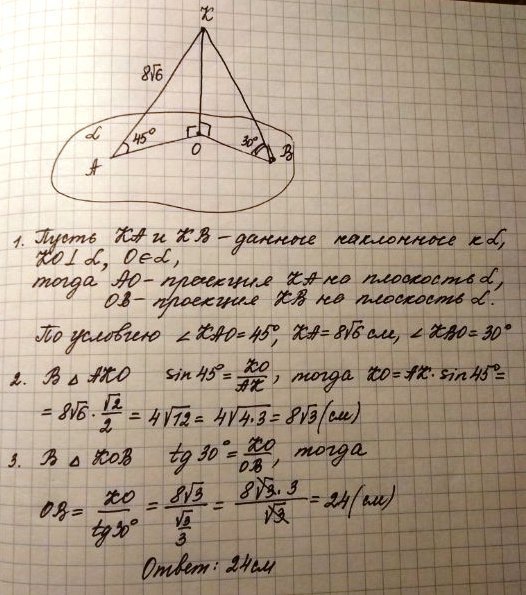 K
8√6
α
45°
30°
A
O
B
1. Пусть KA и KB - данные наклонные к α,
KO⊥α, O∈α,
тогда AO- проекция KA на плоскость α,
OB- проекция KB на плоскость α.
По условию ∠KAO=45°, KA=8√6 см, ∠KBO=30°
2. В △ AKO sin45°= KO/AK, тогда KO=AK·sin45°=
= 8√6 · √2/2 = 4√12 = 4√4·3 = 8√3 (см)
3. В △ KOB tg30°= KO/OB, тогда
OB= KO/tg30° = 8√3/(√3/3) = 8√3·3/√3 = 24 (см)
Ответ: 24см